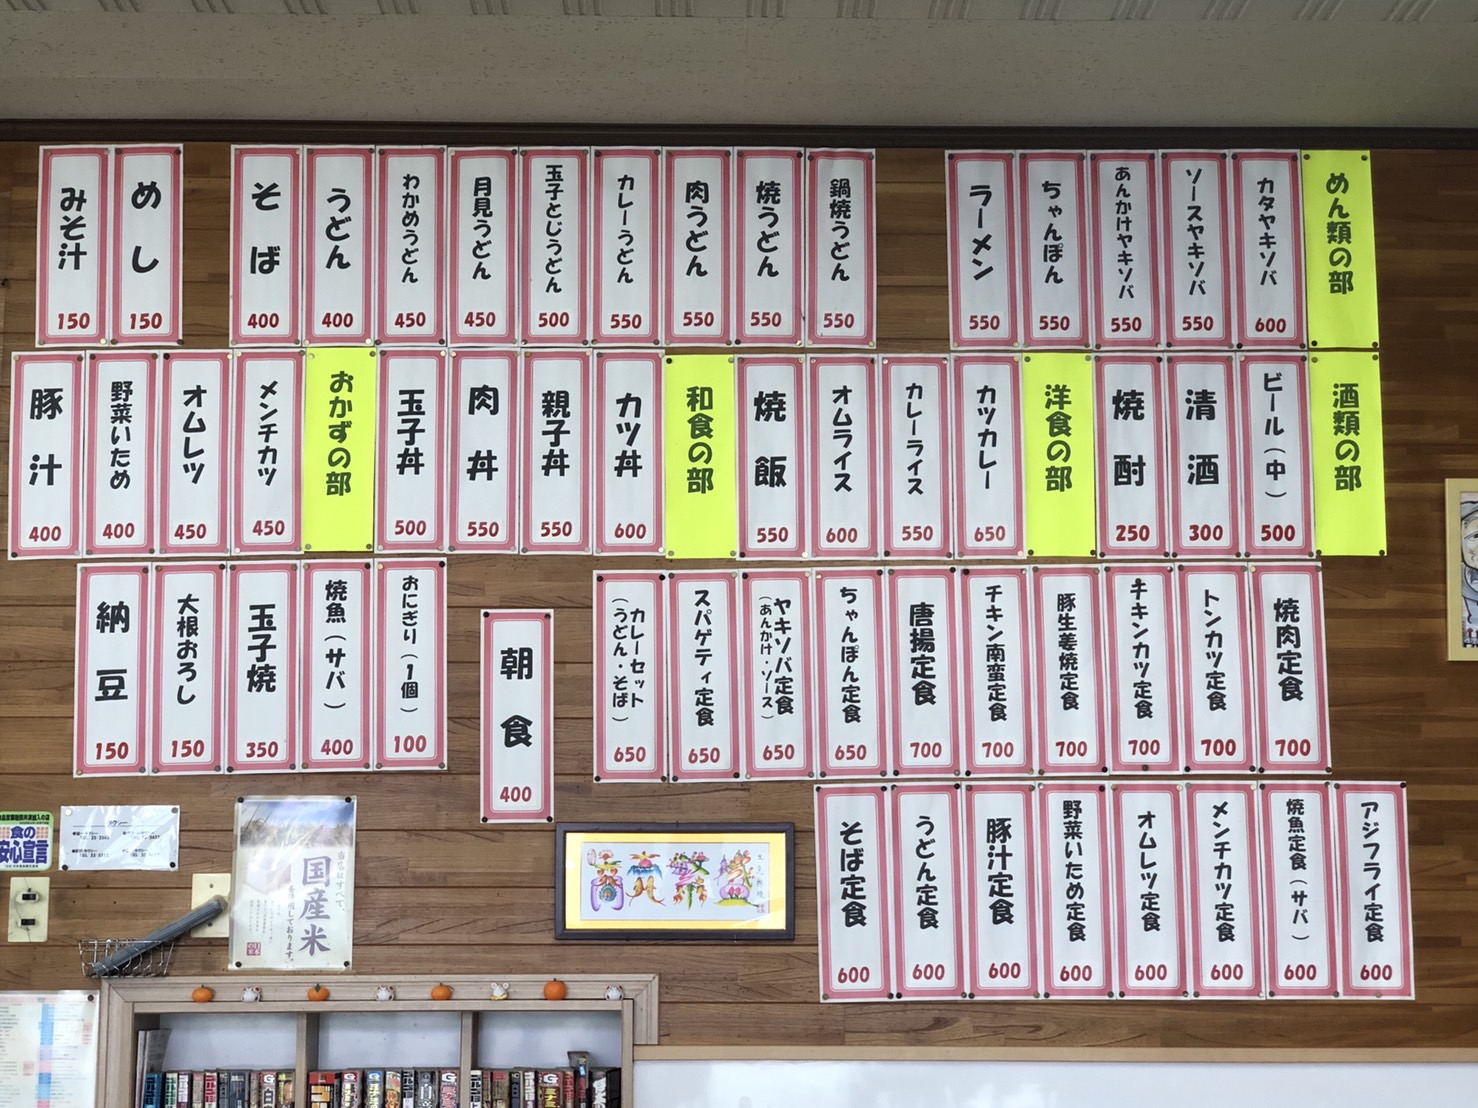 めん類の部
カタヤキソバ 600
ソースヤキソバ 550
あんかけヤキソバ 550
ちゃんぽん 550
ラーメン 550
鍋焼うどん 550
焼うどん 550
肉うどん 550
カレーうどん 550
玉子とじうどん 500
月見うどん 450
わかめうどん 450
うどん 400
そば 400
めし 150
みそ汁 150
酒類の部
ビール(中) 500
清酒 300
焼酎 250
洋食の部
カツカレー 650
カレーライス 550
オムライス 600
焼飯 550
和食の部
カツ丼 600
親子丼 550
肉丼 550
玉子丼 500
おかずの部
メンチカツ 450
オムレツ 450
野菜いため 400
豚汁 400
焼肉定食 700
トンカツ定食 700
チキンカツ定食 700
豚生姜焼定食 700
チキン南蛮定食 700
唐揚定食 700
ちゃんぽん定食 650
ヤキソバ定食
(あんかけ・ソース) 650
スパゲティ定食 650
カレーセット
(うどん・そば) 650
朝食 400
おにぎり(1個) 100
焼魚(サバ) 400
玉子焼 350
大根おろし 150
納豆 150
アジフライ定食 600
焼魚定食(サバ) 600
メンチカツ定食 600
オムレツ定食 600
野菜いため定食 600
豚汁定食 600
うどん定食 600
そば定食 600
食の
安心宣言
国産米